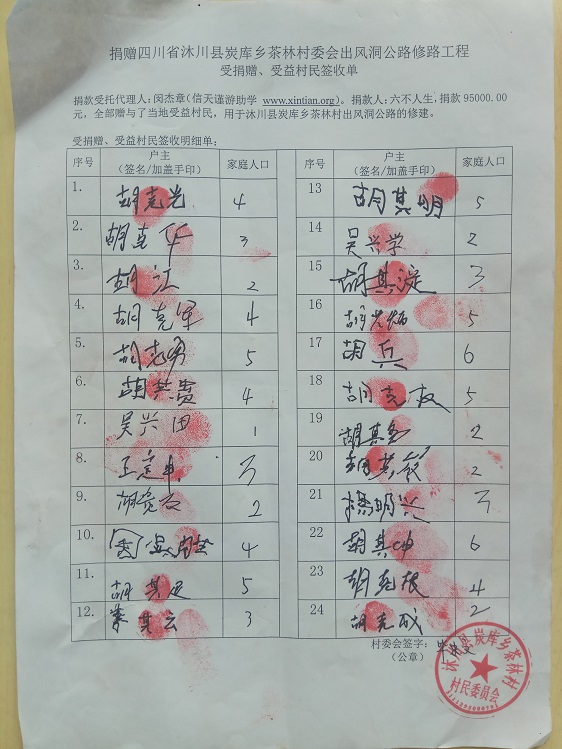 捐赠四川省沐川县炭库乡茶林村委会出风洞公路修路工程
受捐赠、受益村民签收单
捐款受托代理人:闵杰章(信天谨游助学 www.xintian.org)。捐款人:六不人生,捐款 95000.00
元,全部赠与了当地受益村民,用于沐川县炭库乡茶林村出风洞公路的修建。
受捐赠、受益村民签收明细单:
序号 户主 (签名/加盖手印) 家庭人口 序号 户主 (签名/加盖手印) 家庭人口
1. 胡克光 4 13 胡其明 5
2. 胡 华 3 14 吴兴学 2
3. 胡江 2 15 胡其淀 3
4. 胡克军 4 16 胡 5
5. 胡 5 17 胡兵 6
6. 胡其贵 4 18 胡克权 5
7. 吴兴田 1 19 胡其 2
8. 王 3 20 胡其 2
9. 胡 2 21 杨明兴 3
10. 4 22 胡其坤 6
11. 胡其足 5 23 胡克根 4
12. 其云 3 24 胡克成 2
村委会签字:
(公章)
沐川县炭库乡茶林村
村民委员会